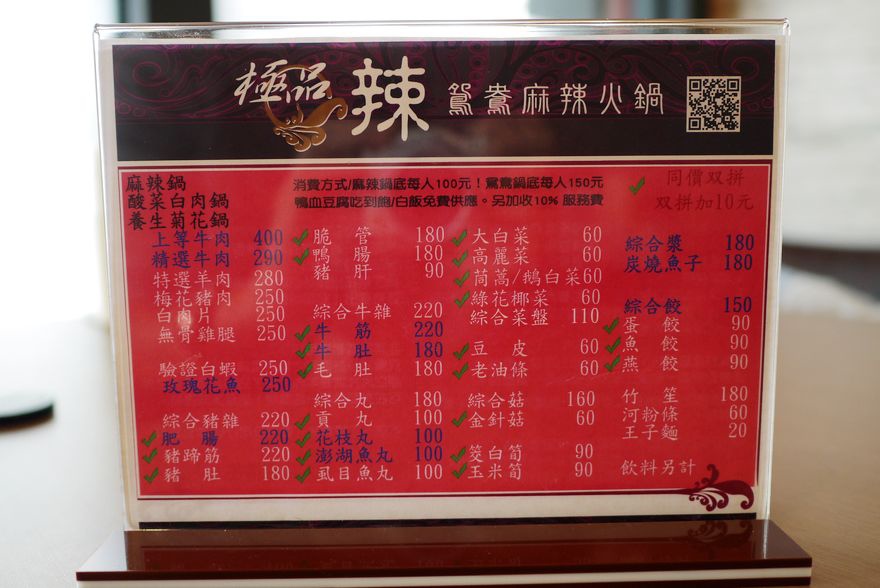 極品 辣 鴛鴦麻辣火鍋
麻辣鍋
酸菜白肉鍋
養生菊花鍋
消費方式/麻辣鍋底每人100元！鴛鴦鍋底每人150元
鴨血豆腐吃到飽/白飯免費供應。另加收10% 服務費
同價双拼
双拼加10元
上等牛肉 400
精選牛肉 290
特選羊肉 280
梅花豬肉 250
白肉片 250
無骨雞腿 250
驗證白蝦 250
玫瑰花魚 250
綜合豬雜 220
肥腸 220
豬蹄筋 220
豬肚 180
脆管 180
鴨腸 180
豬肝 90
綜合牛雜 220
牛筋 220
牛肚 180
毛肚 180
綜合丸 180
貢丸 100
花枝丸 100
澎湖魚丸 100
虱目魚丸 100
大白菜 60
高麗菜 60
茼萵/鵝白菜 60
綠花椰菜 60
綜合菜盤 110
豆皮 60
老油條 60
綜合菇 160
金針菇 60
筊白筍 90
玉米筍 90
綜合漿 180
炭燒魚子 180
綜合餃 150
蛋餃 90
魚餃 90
燕餃 90
竹笙 180
河粉條 60
王子麵 20
飲料另計